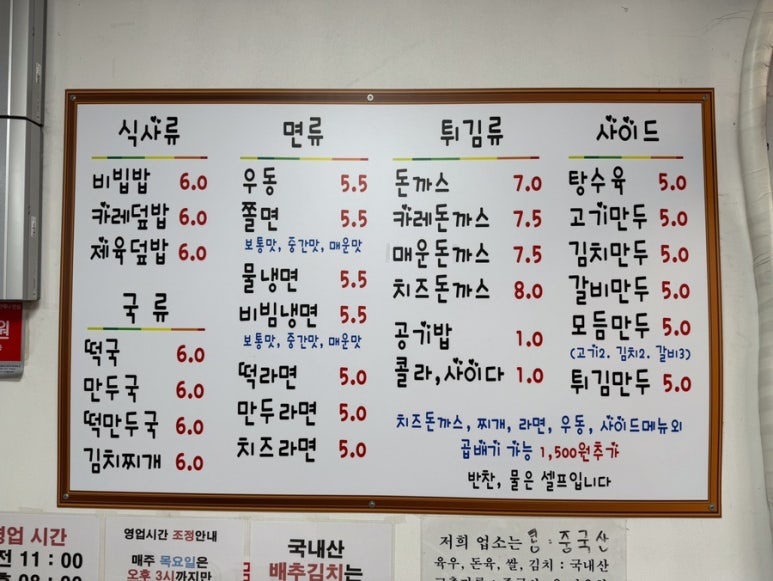 식사류
비빕밥 6.0
카레덮밥 6.0
제육덮밥 6.0
국류
떡국 6.0
만두국 6.0
떡만두국 6.0
김치찌개 6.0
면류
우동 5.5
쫄면 5.5
보통맛, 중간맛, 매운맛
물냉면 5.5
비빔냉면 5.5
보통맛, 중간맛, 매운맛
떡라면 5.0
만두라면 5.0
치즈라면 5.0
튀김류
돈까스 7.0
카레돈까스 7.5
매운돈까스 7.5
치즈돈까스 8.0
공기밥 1.0
콜라,사이다 1.0
사이드
탕수육 5.0
고기만두 5.0
김치만두 5.0
갈비만두 5.0
모듬만두 5.0
(고기2. 김치2. 갈비3)
튀김만두 5.0
치즈돈까스, 찌개, 라면, 우동, 사이드메뉴외
곱배기 가능 1,500원추가
반찬, 물은 셀프입니다
원
영업 시간
전 11 : 00
영업시간 조정안내
매주 목요일은
오후 3시까지만
국내산
배추김치는
저희 업소는 중국산
육우, 돈육, 쌀, 김치 : 국내산